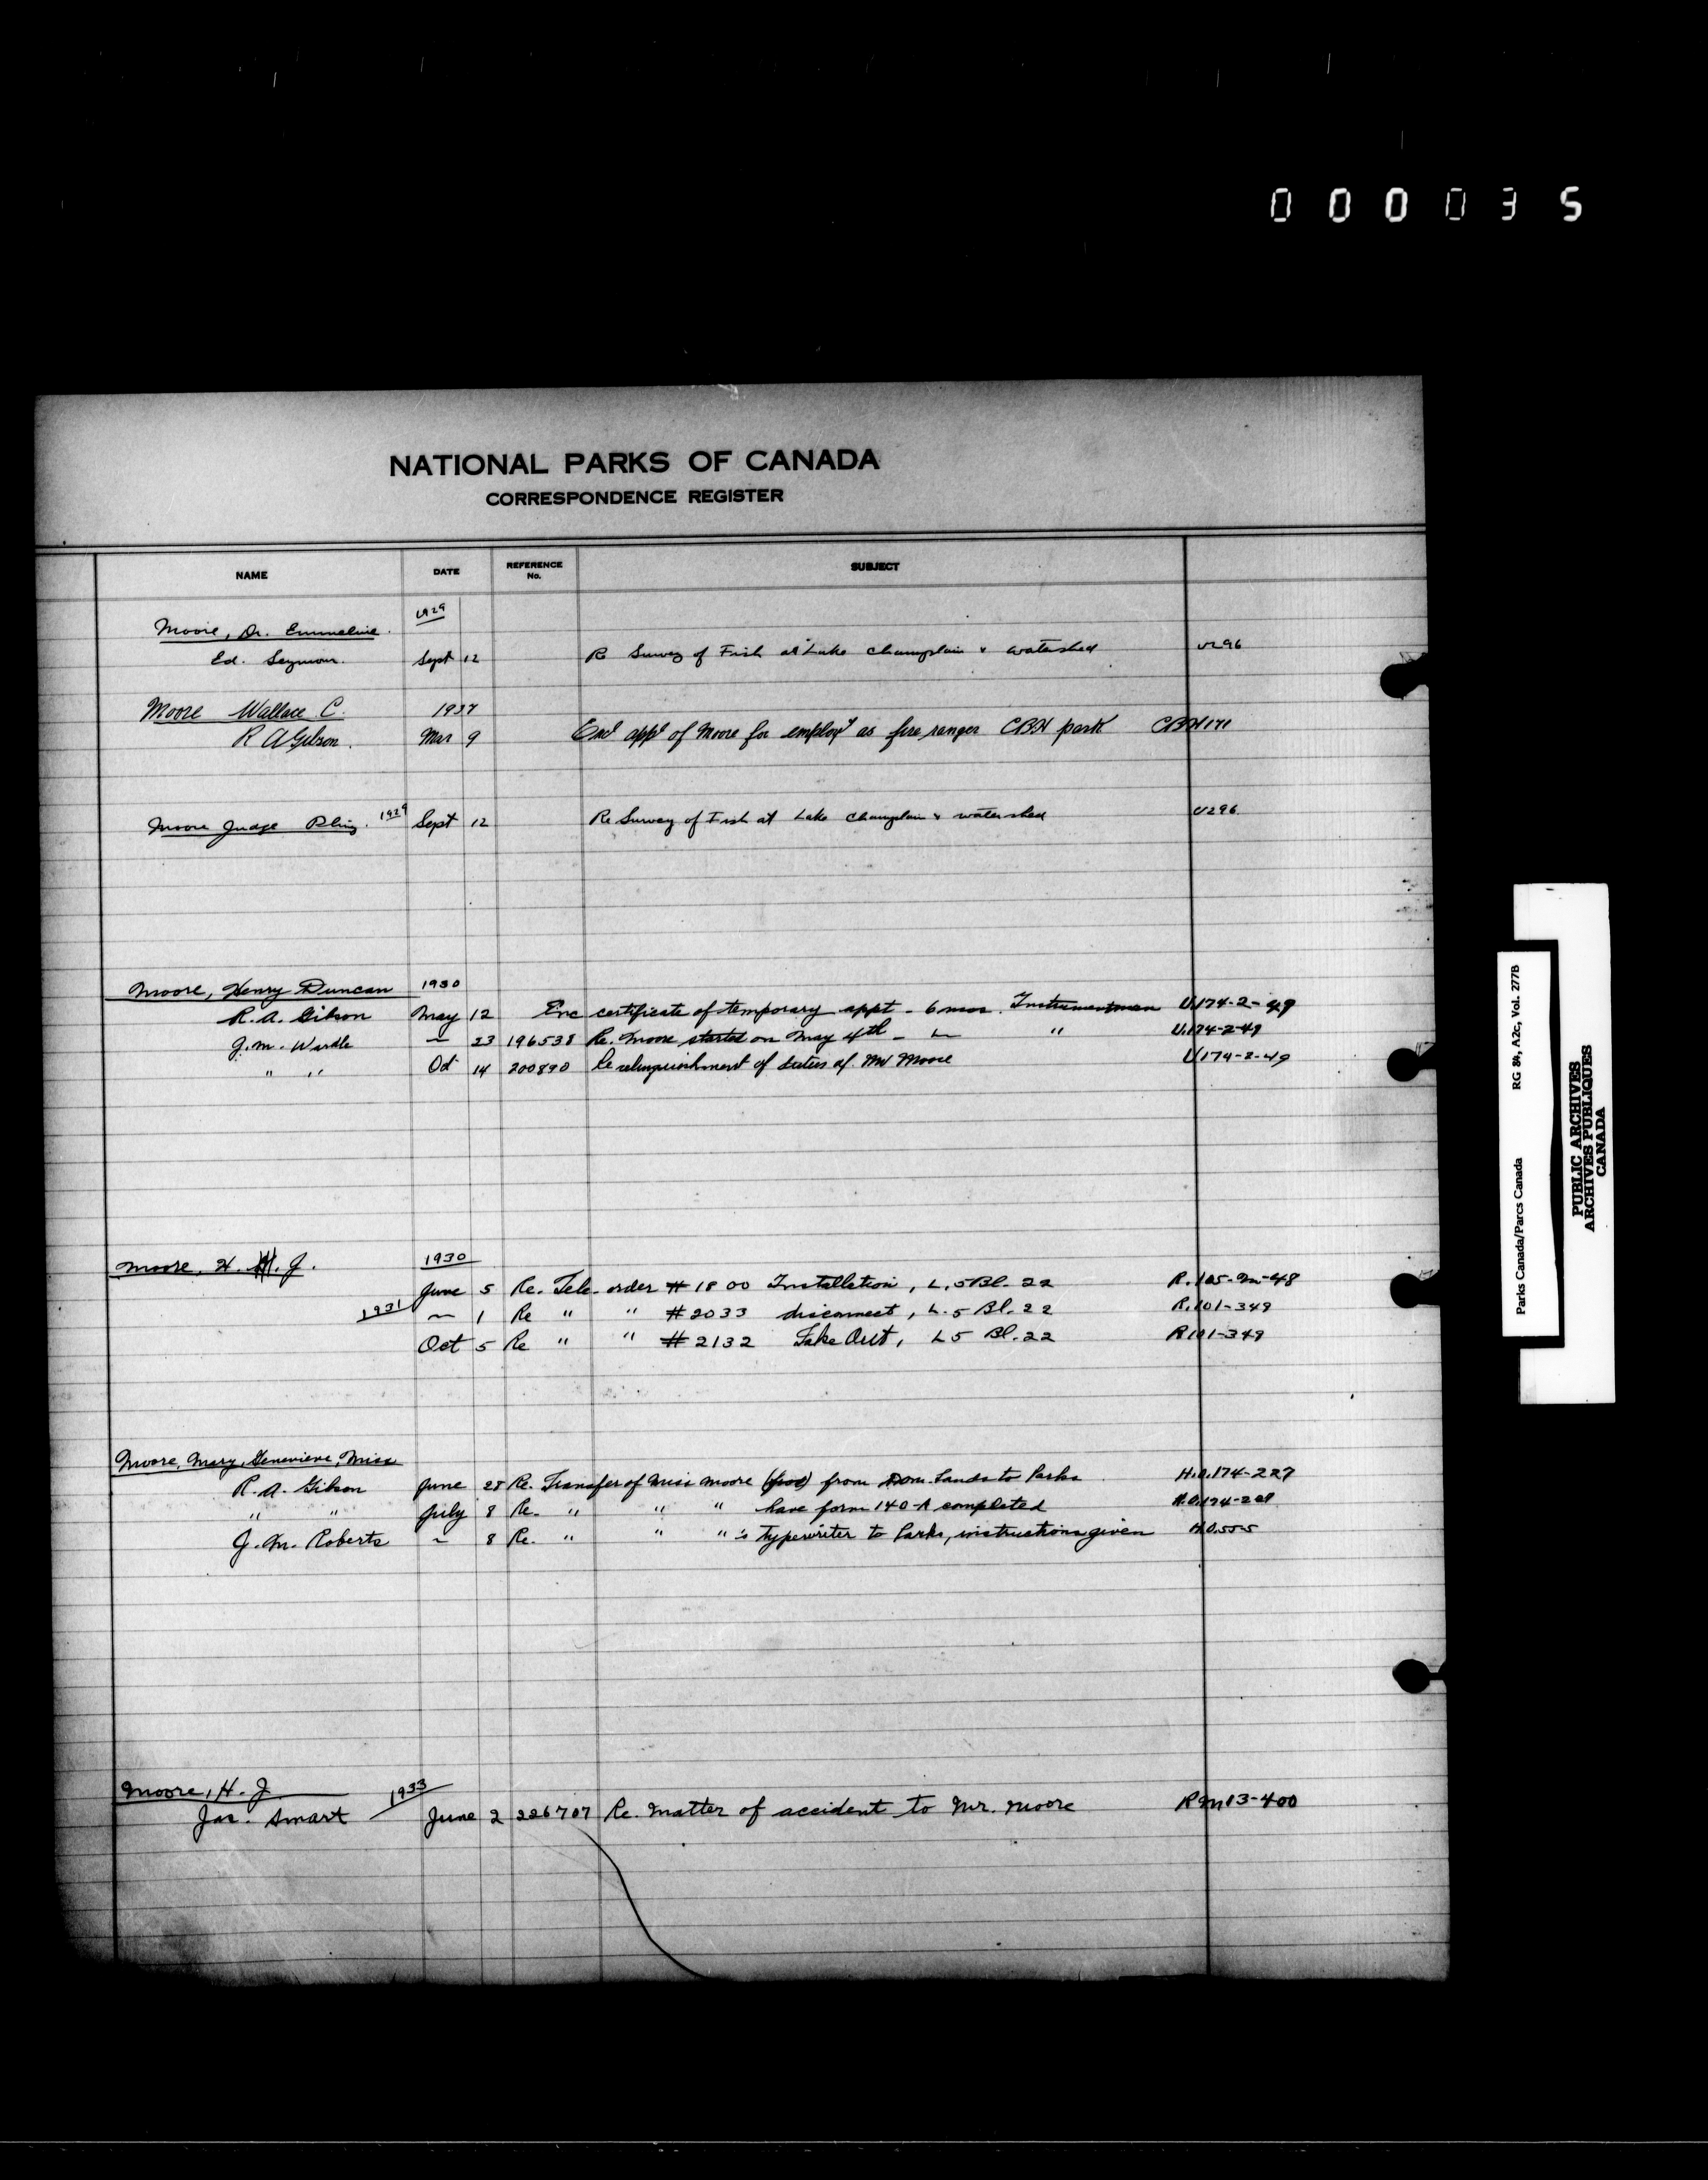 000035
NATIONAL PARKS OF CANADA
CORRESPONDENCE REGISTER
NAME DATE REFERENCE No. SUBJECT
1929
Moore, Dr. Emmeline.
Ed. Seymour. Sept 12 Re Survey of Fish at Lake Champlain & watershed U296
Moore Wallace C. 1937
R A Gibson. Mar 9 Encl appl of Moore for employt as fire ranger CBH park CBH171
Moore Judge 1929 Sept 12 Re Survey of Fish at Lake Champlain & watershed U296
Moore, Henry Duncan 1930
R. A. Gibson May 12 Enc certificate of temporary appt - 6 mos. Instrumentman U.174-2-49
J. M. Wardle ~ 23 196538 Re. Moore started on May 4th - " U.174-2-49
" " Oct 14 200890 Re relinquishment of duties of Mr Moore U174-2-49
Moore, H. J. 1930
June 5 Re. Tele. order # 1800 Installation, L. 5 Bl. 22 R.105-M-48
1931 ~ 1 Re " " # 2033 disconnect, L. 5 Bl. 22 R.101-349
Oct 5 Re " " # 2132 Take Out, L 5 Bl. 22 R101-349
Moore, Mary, Genevieve, Miss
R. A. Gibson June 28 Re. Transfer of Miss Moore from Dom. Lands to Parks H.O.174-229
" " July 8 Re. " " " have form 140-A completed H.O.174-229
J. M. Roberts ~ 8 Re. " " "'s typewriter to Parks, instructions given H.O.55-5
Moore, H. J. 1933
Jas. Smart June 2 226707 Re. Matter of accident to Mr. Moore RM13-400
Parks Canada/Parcs Canada RG 84, A2c, Vol. 277B
PUBLIC ARCHIVES
ARCHIVES PUBLIQUES
CANADA